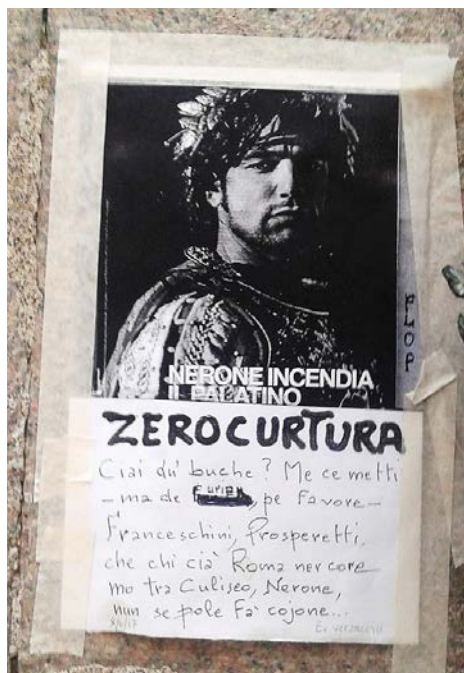 FLOP
NERONE INCENDIA
IL PALATINO
ZEROCURTURA
Ciai du' buche? Me ce metti
- ma de pe favore -
Franceschini, Prosperetti,
che chi cià Roma ner core
mo tra Culiseo, Nerone,
nun se pole fà cojone...